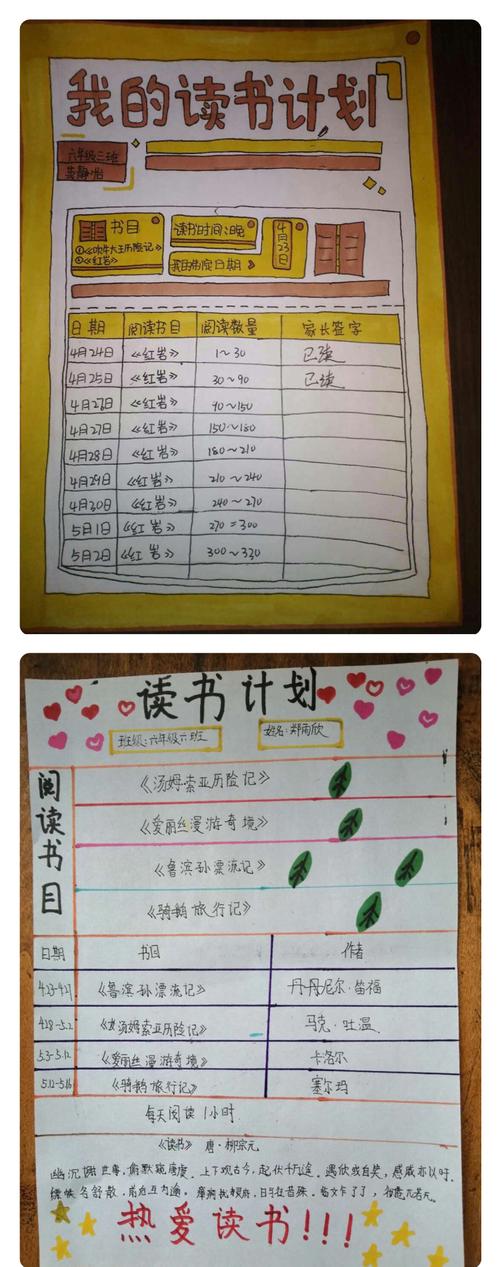 我的读书计划
六年级三班
黄静怡
书目
①《吹牛大王历险记》
②《红岩》
读书时间:晚
我的书完日期
4月23日
日期 阅读书目 阅读数量 家长签字
4月24日 《红岩》 1~30 已读
4月25日 《红岩》 30~90 已读
4月26日 《红岩》 90~150
4月27日 《红岩》 150~180
4月28日 《红岩》 180~210
4月29日 《红岩》 210~240
4月30日 《红岩》 240~270
5月1日 《红岩》 270=300
5月2日 《红岩》 300~330
读书计划
班级:六年级六班 姓名:郑雨欣
阅读书目
《汤姆索亚历险记》
《爱丽丝漫游奇境》
《鲁滨孙漂流记》
《骑鹅旅行记》
日期 书目 作者
4.23-4.27 《鲁滨孙漂流记》 丹·丹尼尔·笛福
4.28-5.2 《汤姆索亚历险记》 马克·吐温
5.3-5.12 《爱丽丝漫游奇境》 卡洛尔
5.12-5.16 《骑鹅旅行记》 塞尔玛
每天阅读1小时
《读书》 唐·柳宗元
幽沉谢世事,俯默窥唐虞。上下观古今,起伏千万途。遇欣或自笑,感戚亦以吁。
缥帙各舒散,前后互相逾。
热爱读书!!!